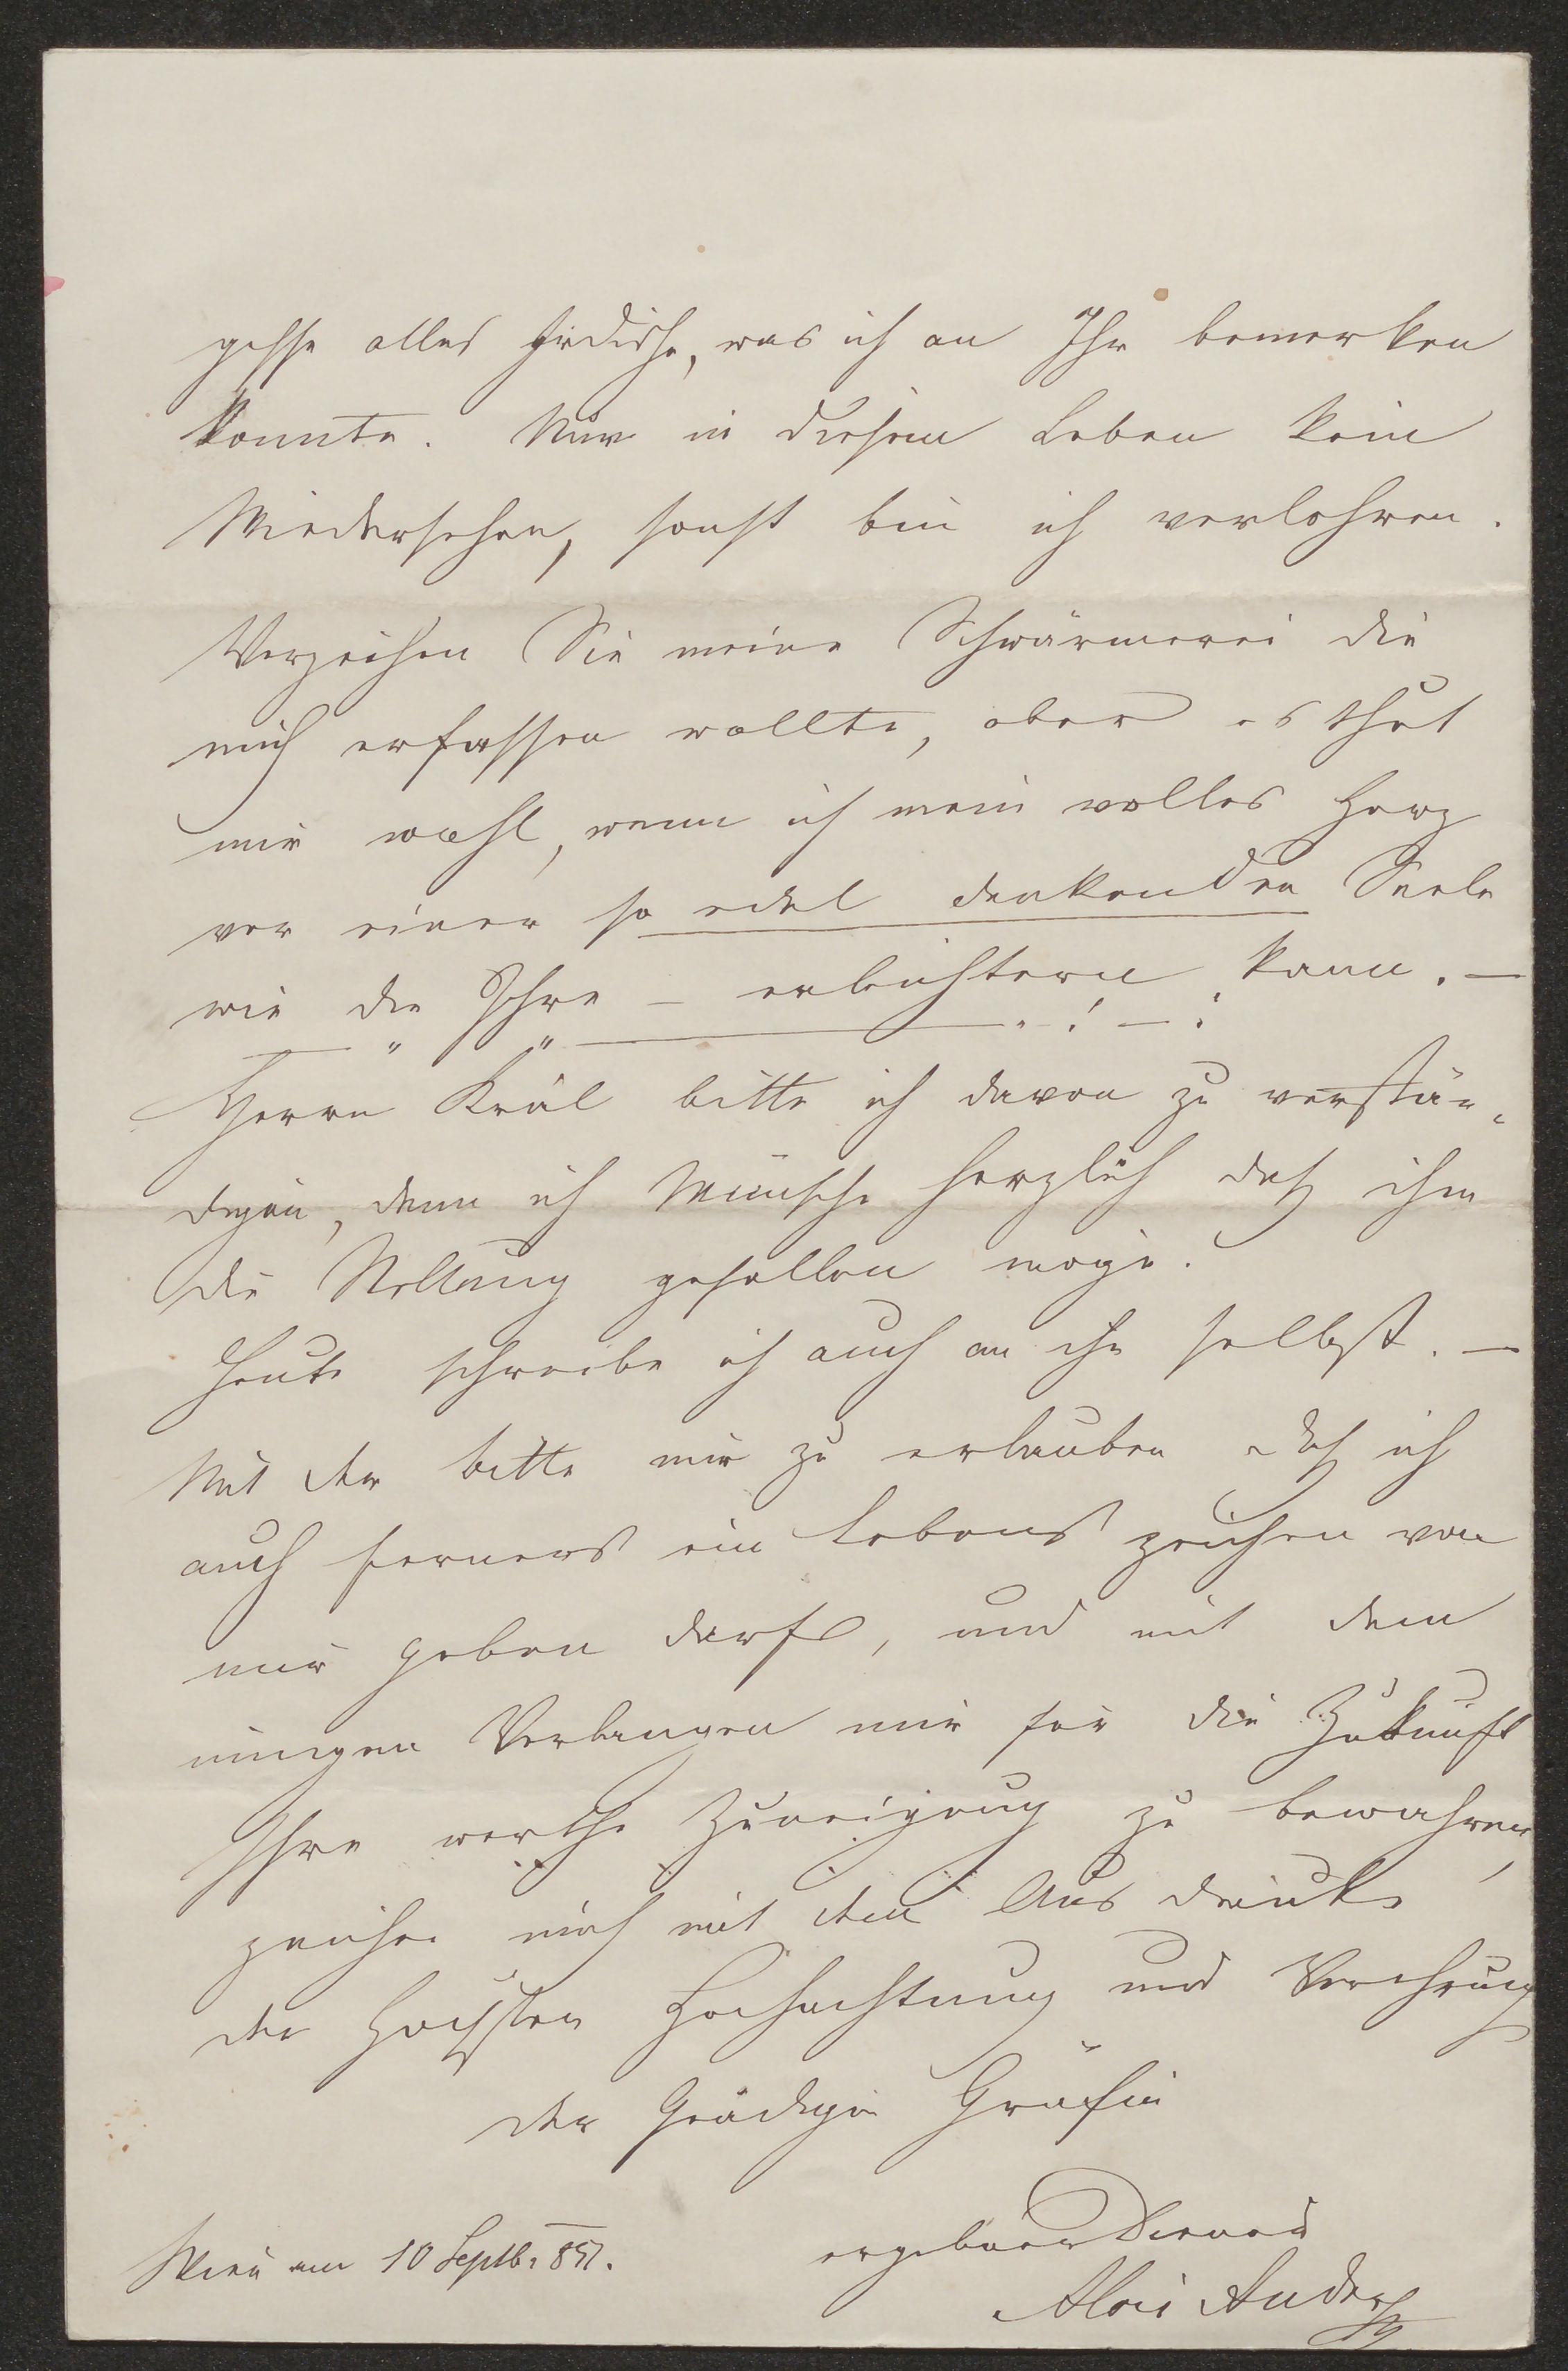 gesse alles Irdische, was ich an Ihr bemerken
konnte. Nur in diesem Leben kein
Wiedersehen, sonst bin ich verlohren.
Verzeihen Sie meine Schwärmerei die
mich erfassen wollte, aber es thut
mir wohl, wenn ich mein volles Herz
vor einer so edel denkenden Seele
wie die Ihre – erleichtern kann. –
Herrn Král bitte ich davon zu verstän-
digen, denn ich Wünsche herzlich daß ihm
die Stellung gefallen möge.
Heute schreibe ich auch an ihn selbst. –
Mit der bitte mir zu erlauben daß ich
auch ferners ein Lebens zeichen von
mir geben darf, und mit dem
innigen Verlangen mir für die Zukunft
Ihre werthe Zuneigung zu bewahren,
zeichne mich mit dem Ausdrucke
der Höchsten Hochachtung und Verehrung
der Gnädigen Gräfin
ergebener Diener
Wien am 10 Septb. 857.
Alois Ander